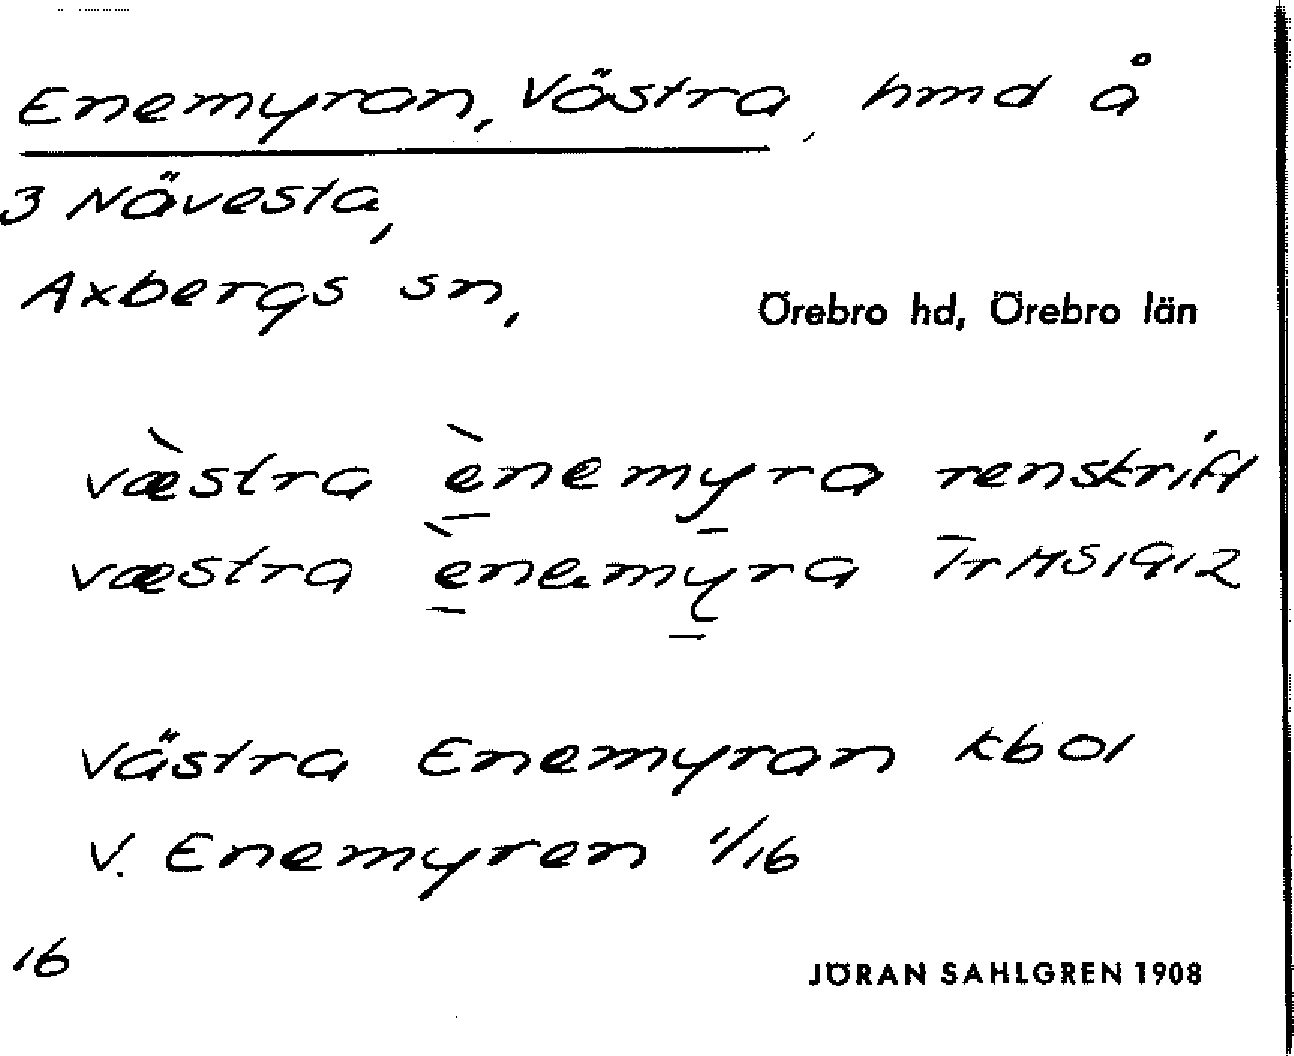 Enemyran, Västra, hmd å
3 Nävesta,
Axbergs sn,
Örebro hd, Örebro län
væ̀stra ènemyra renskrift
væstra ènemyra Tr MS 1912
Västra Enemyran kb 01
V. Enemyren 1/16
16
JÖRAN SAHLGREN 1908